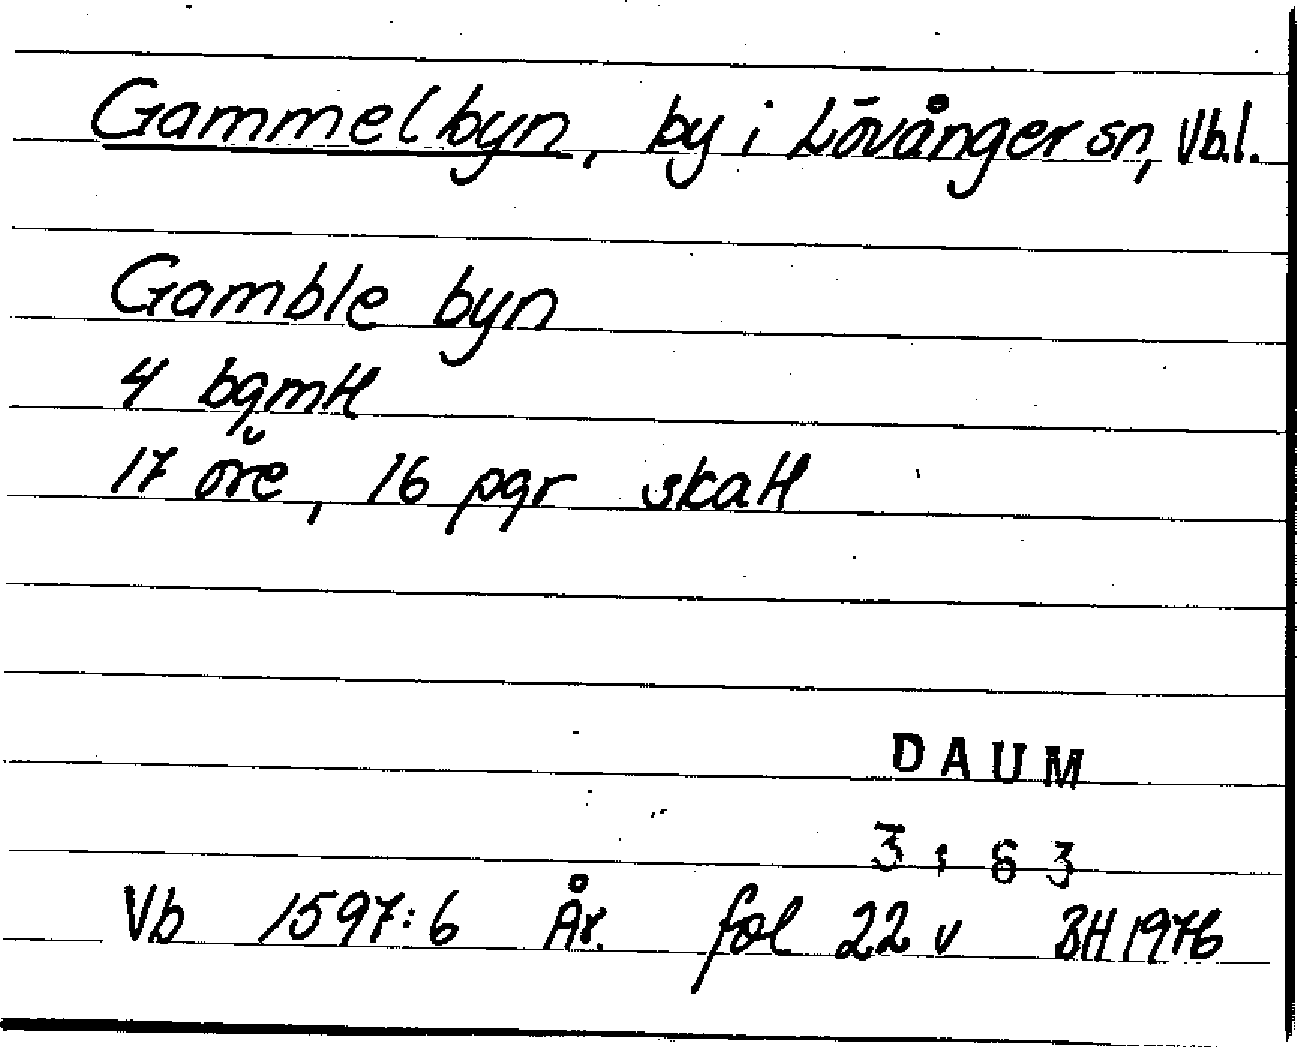 Gammelbyn, by i Lövånger sn, Vb.l.
Gamble byn
4 bgmtl
17 öre, 16 pgr skatt
DAUM
3163
Vb 1597:6 År. fol 22 v BH 1976